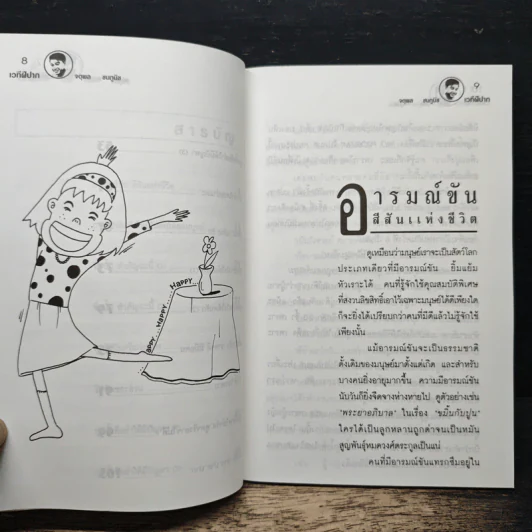 8
เวทีฝีปาก
จตุพล ชมภูนิช
สารบัญ
HAPPY...HAPPY...HAPPY
จตุพล ชมภูนิช
เวทีฝีปาก
อารมณ์ขัน
สีสันแห่งชีวิต
ดูเหมือนว่ามนุษย์เราจะเป็นสัตว์โลก
ประเภทเดียวที่มีอารมณ์ขัน ยิ้มแย้ม
หัวเราะได้ คนที่รู้จักใช้คุณสมบัติพิเศษ
ที่สงวนลิขสิทธิ์เอาไว้เฉพาะมนุษย์ได้ดีเพียงใด
ก็จะยิ่งได้เปรียบกว่าคนที่มีดีแล้วไม่รู้จักใช้
เพียงนั้น
แม้อารมณ์ขันจะเป็นธรรมชาติ
ดั้งเดิมของมนุษย์มาตั้งแต่เกิด และสำหรับ
บางคนยิ่งอายุมากขึ้น ความมีอารมณ์ขัน
นับวันก็ยิ่งจืดจางห่างหายไป ดูตัวอย่างเช่น
"พระยาอภิบาล" ในเรื่อง "ขมิ้นกับปูน"
ใครได้เป็นลูกหลานถูกด่าจนเป็นหมัน
สูญพันธุ์หมดวงศ์ตระกูลเป็นแน่
คนที่มีอารมณ์ขันแทรกซึมอยู่ใน